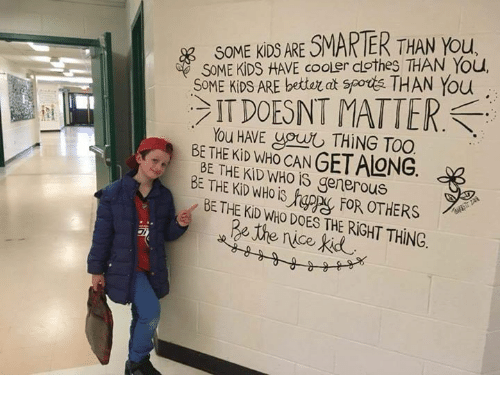 SOME KIDS ARE SMARTER THAN YOU,
SOME KIDS HAVE cooler clothes THAN YOU,
SOME KIDS ARE better at sports THAN YOU
IT DOESNT MATTER.
YOU HAVE your THING TOO.
BE THE KID WHO CAN GET ALONG.
BE THE KID WHO IS generous
BE THE KID WHO is happy FOR OTHERS
BE THE KID WHO DOES THE RIGHT THING.
Be the nice kid.